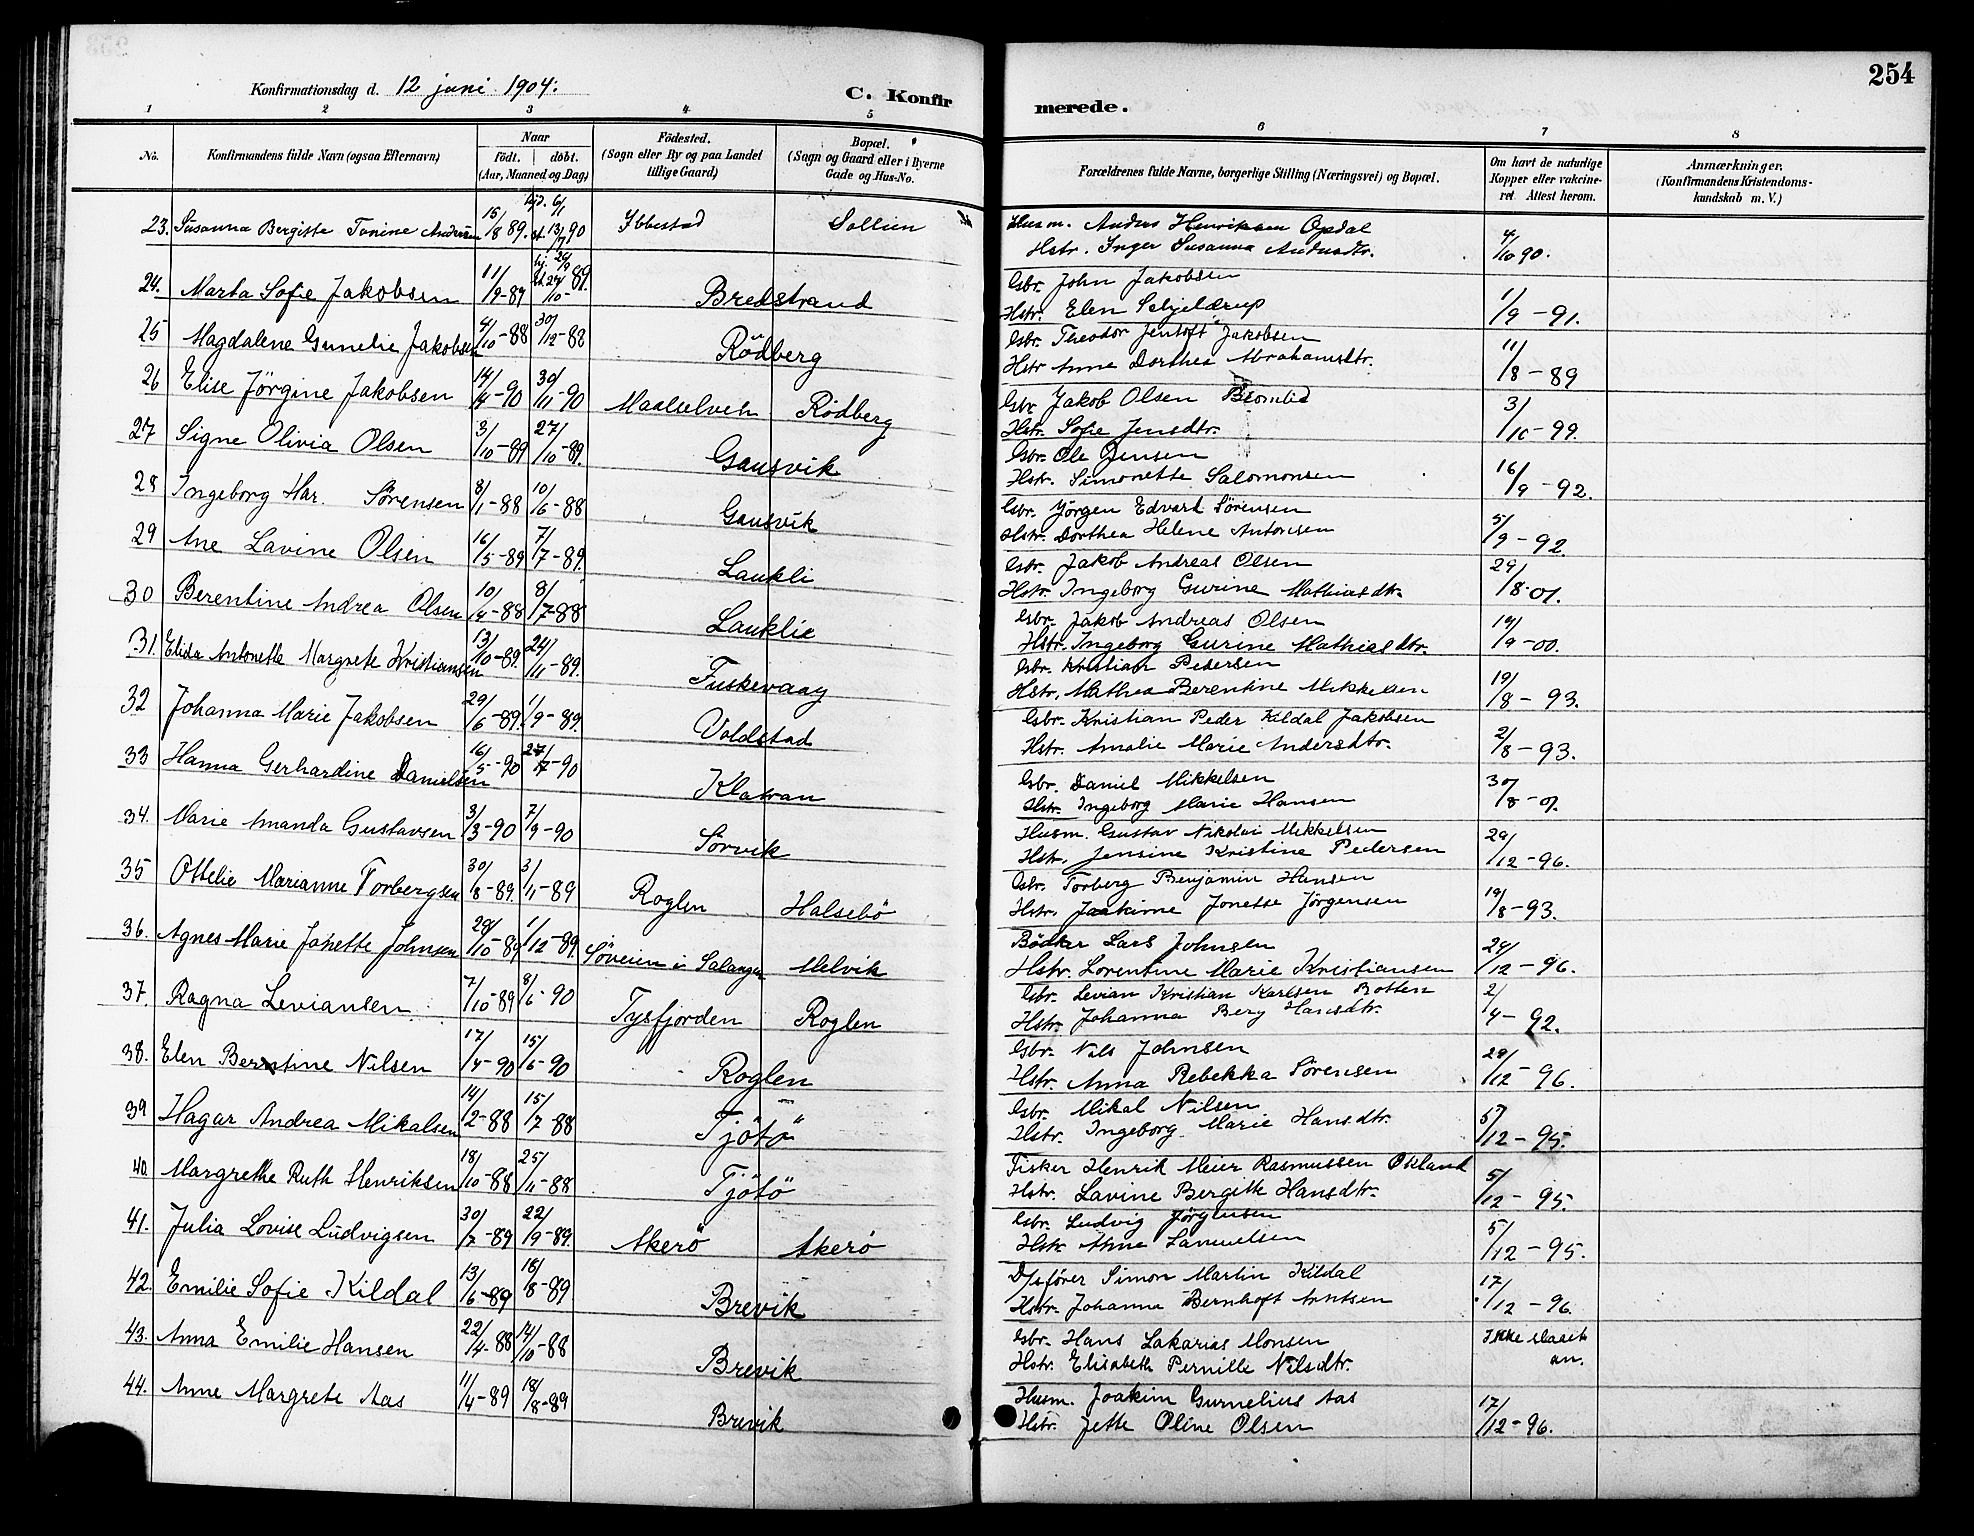 254
Konfirmationsdag d. 12 juni 1904.
C. Konfirmerede.
1 2 3 4 5 6 7 8
No.
Konfirmandens fulde Navn (ogsaa Efternavn)
Naar
Födt. | döbt.
(Aar, Maaned og Dag)
Födested.
(Sogn eller By og paa Landet
tillige Gaard)
Bopæl.
(Sogn og Gaard eller i Byerne
Gade og Hus-No.
Forældrenes fulde Navne, borgerlige Stilling (Næringsvei) og Bopæl.
Om havt de naturlige
Kopper eller vakcine-
ret Attest herom.
Anmærkninger.
(Konfirmandens Kristendoms-
kundskab m. V.)
23. Susanna Bergitte Tonine Andersen 15/8 89. hjd. 6/1 st. 13/7 90 Ibbestad Sollien Husm. Anders Henriksen Opdal
Hstr. Inger Susanna Andersdtr. 4/10 90.
24. Marta Sofie Jakobsen 11/9-89 hj. 24/9 st. 27/10 89. Bredstrand Gbr. John Jakobsen
Hstr. Elen Schjelderup 1/9-91.
25 Magdalene Gunelie Jakobsen 4/10-88 30/12-88 Rödberg Gbr. Theodor Jentoft Jakobsen
Hstr Anne Dorthea Abrahamsdtr. 11/8-89
26 Elise Jörgine Jakobsen 14/4-90 30/11-90 Maalselven Rödberg Gbr Jakob Olsen Blomlid
Hstr. Sofie Jensdtr. 3/10-99.
27 Signe Olivia Olsen 3/10-89 27/10-89. Gausvik Gbr. Ole Jensen
Hstr. Simonette Salomonsen 16/9-92.
28 Ingeborg Har. Sörensen 8/1-88 10/6-88 Gausvik Gbr. Jörgen Edvart Sörensen
Hstr. Dorthea Helene Antonsen 5/9-92
29 Ane Lavine Olsen 16/5-89 7/7-89. Laukli Gbr. Jakob Andreas Olsen
Hstr. Ingeborg Gurine Mathiasdtr. 29/8-01.
30 Berentine Andrea Olsen 10/4-88 8/7-88 Lauklie Gbr. Jakob Andreas Olsen
Hstr. Ingeborg Gurine Mathiasdtr. 14/9-00.
31. Elida Antonette Margrete Kristiansen 13/10-89. 24/11-89. Fuskevaag Gbr. Kristian Pedersen
Hstr. Mathea Berentine Mikkelsen 19/8-93.
32 Johanna Marie Jakobsen 29/6-89. 1/9-89. Voldstad Gbr. Kristian Peder Kildal Jakobsen
Hstr. Amalie Marie Andersdtr. 2/8-93.
33 Hanna Gerhardine Danielsen 16/5-90 27/7-90 Klatran Gbr. Daniel Mikkelsen
Hstr. Ingeborg Marie Hansen 30/8-01.
34. Marie Amanda Gustavsen 3/3-90 7/9-90 Sörvik Husm. Gustav Nikolai Mikkelsen
Hstr. Jensine Kristine Pedersen 29/12-96.
35 Ottelie Marianne Torbergsen 30/8-89. 3/11-89 Roglen Halsebö Gbr. Torberg Benjamin Hansen
Hstr. Joakime Jonette Jörgensen 19/8-93.
36. Agnes Marie Jonette Johnsen 29/10-89 1/12-89. Söveien i Salangen Melvik Bödker Lars Johnsen
Hstr. Lorentine Marie Kristiansen 29/12-96.
37. Ragna Leviansen 7/10-89 8/6-90 Tysfjorden Roglen Gbr. Levian Kristian Karlsen Botten
Hstr. Johanna Berg Hansdtr. 2/4-92.
38. Elen Berntine Nilsen 17/4-90 15/6-90 Roglen Gbr. Nils Johnsen
Hstr. Anna Rebekka Sörensen 29/12-96.
39 Hagar Andrea Mikalsen 14/2-88 15/7-88 Tjötö Gbr. Mikal Nilsen
Hstr. Ingeborg Marie Hansdtr. 5/12-95.
40. Margrethe Ruth Henriksen 18/10-88 25/11-88 Tjötö Fisker Henrik Meier Rasmussen Okland
Hstr. Lavine Bergitte Hansdtr. 5/12-95.
41. Julia Lovise Ludvigsen 30/7-89 22/9-89. Akerö Akerö Gbr. Ludvig Jörgensen
Hstr. Anne Samuelsen 5/12-95.
42. Emilie Sofie Kildal 13/6-89 18/8-89 Brevik D/sförer Simon Martin Kildal
Hstr. Johanna Bernhoft Arntsen 17/12-96.
43. Anna Emilie Hansen 22/4-88 14/10-88 Brevik Gbr. Hans Sakarias Monsen
Hstr. Elisabeth Pernille Nilsdtr. Ikke slaaet
an.
44. Anne Margrete Aas 11/4-89 18/8-89 Brevik Husm. Joakim Gurnelius Aas
Hstr. Jette Oline Olsen 17/12-96.